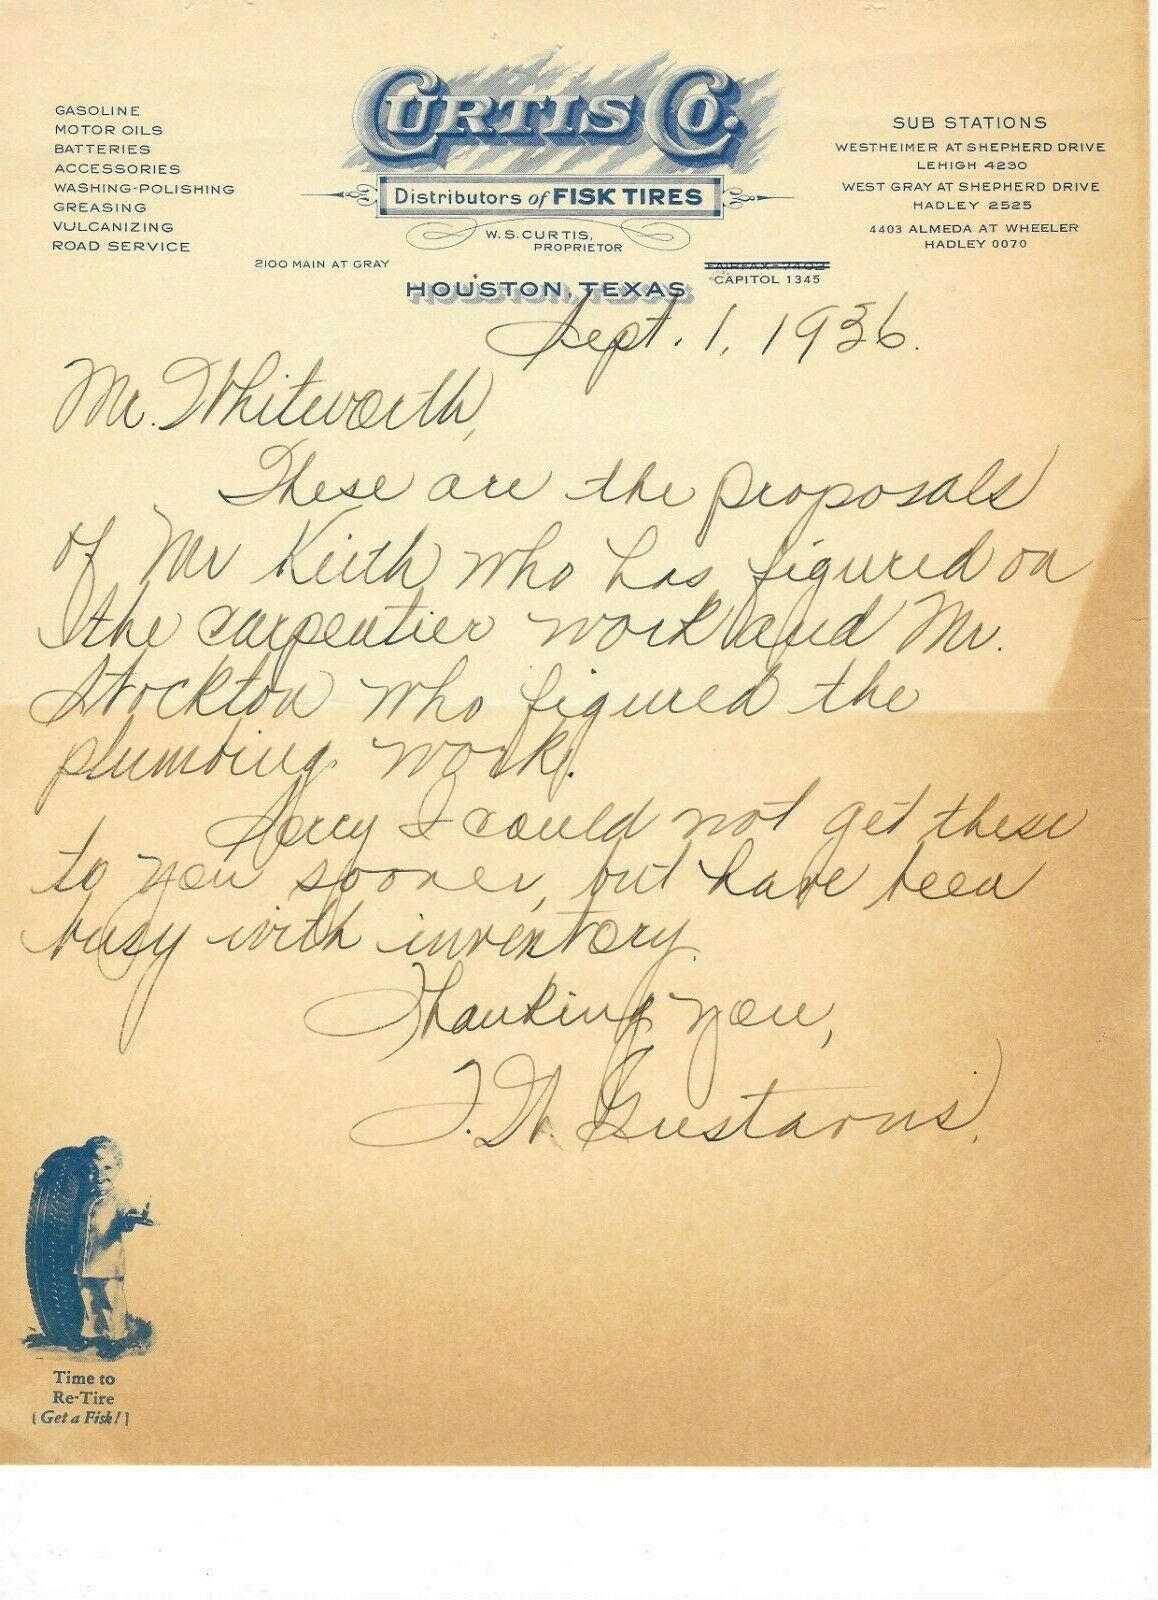 CURTIS CO.
Distributors of FISK TIRES
W. S. CURTIS,
PROPRIETOR
GASOLINE
MOTOR OILS
BATTERIES
ACCESSORIES
WASHING-POLISHING
GREASING
VULCANIZING
ROAD SERVICE
SUB STATIONS
WESTHEIMER AT SHEPHERD DRIVE
LEHIGH 4230
WEST GRAY AT SHEPHERD DRIVE
HADLEY 2525
4403 ALMEDA AT WHEELER
HADLEY 0070
2100 MAIN AT GRAY
FAIRFAX 7402
CAPITOL 1345
HOUSTON, TEXAS
Sept. 1, 1936.
Mr. Whitworth,
These are the proposals
of Mr Keith who has figured on
the carpentier work and Mr.
Stockton who figured the
plumbing work.
Sorry I could not get these
to you sooner, but have been
busy with inventory.
Thanking you,
Time to
Re-Tire
(Get a Fisk!)